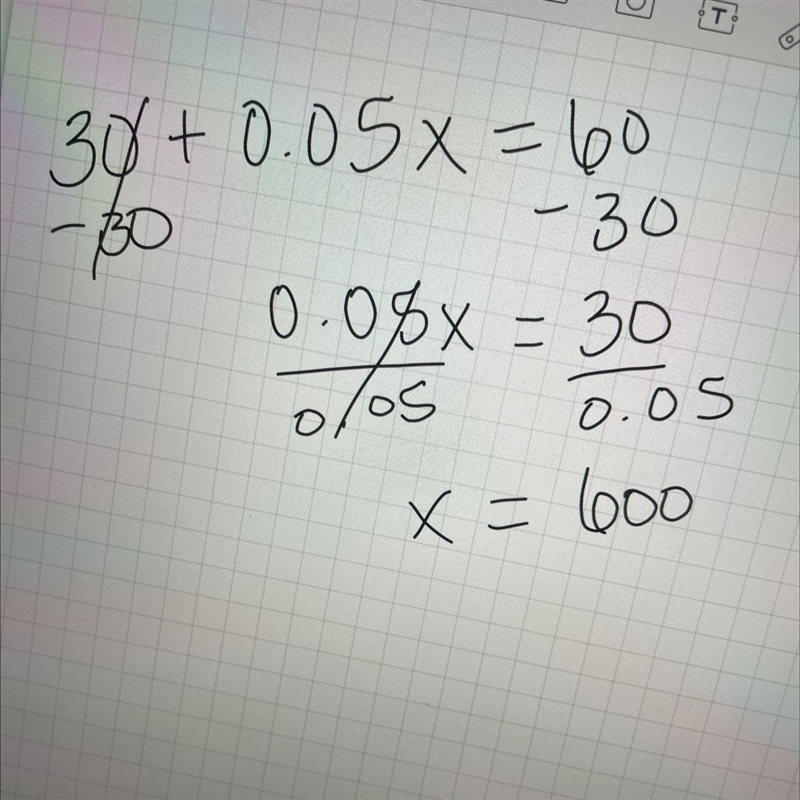 T
30 + 0.05x = 60
-30 -30
0.05x = 30
0.05 0.05
x = 600